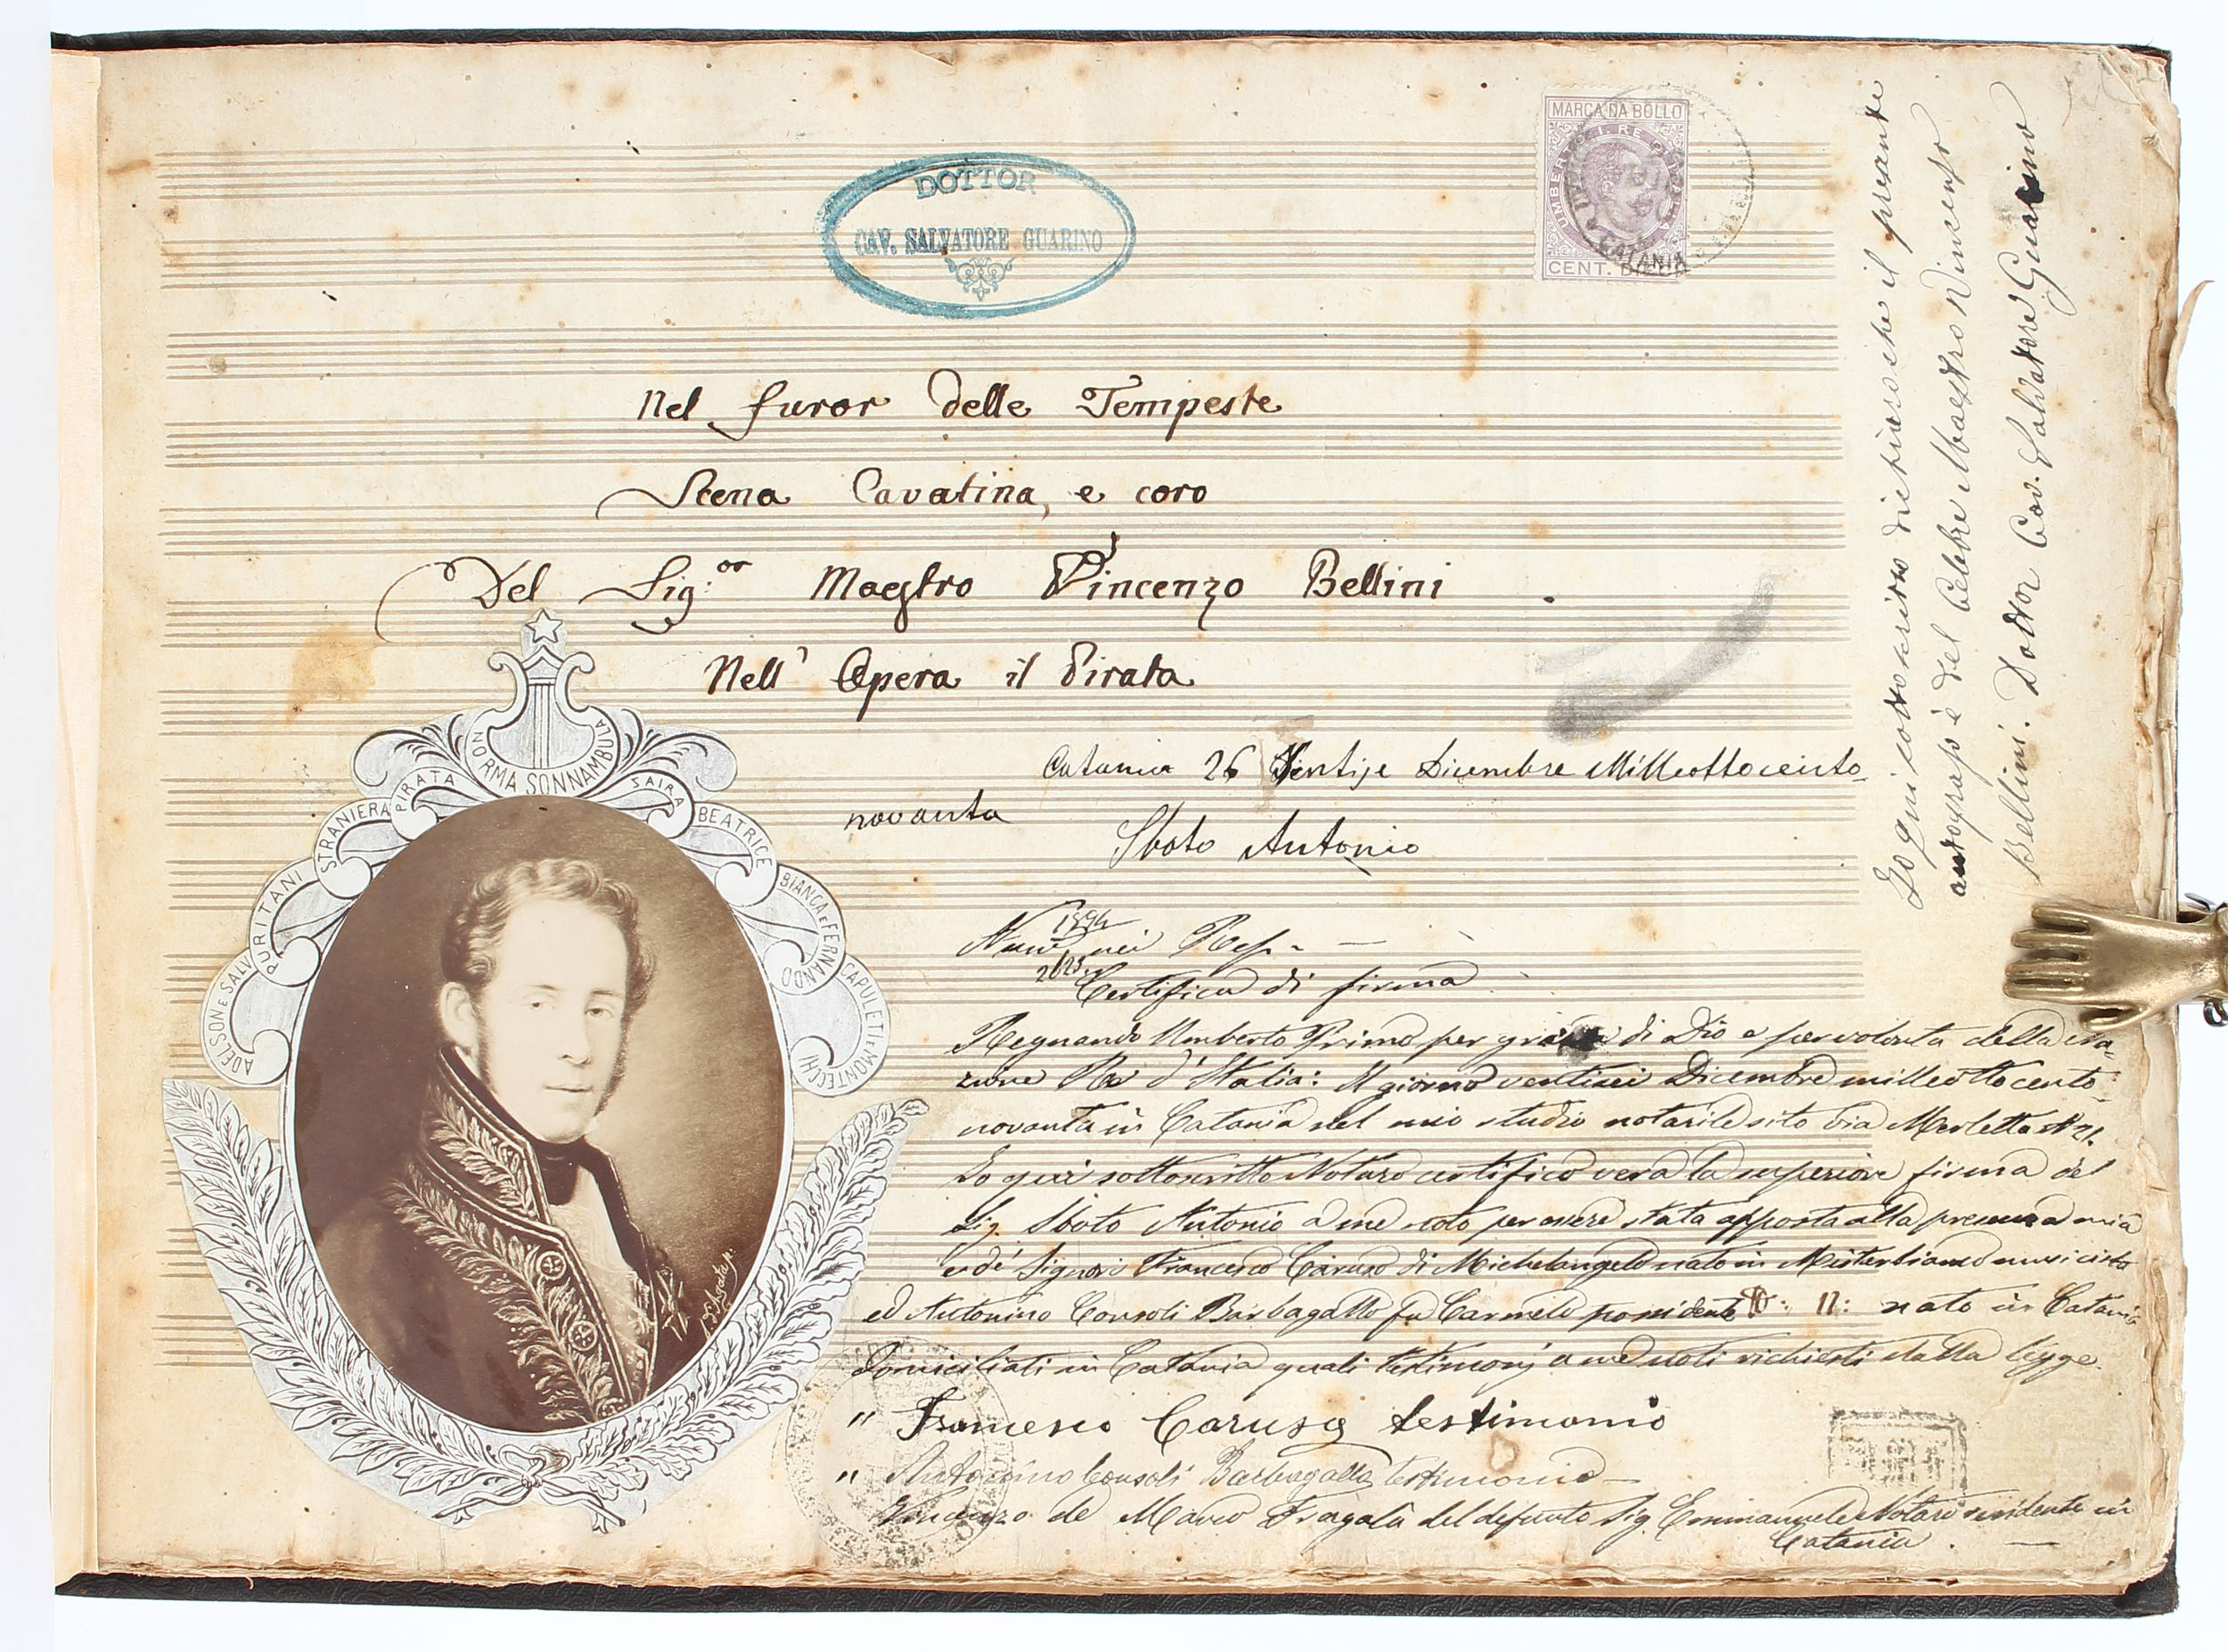 DOTTOR
CAV. SALVATORE GUARINO
MARCA DA BOLLO
UMBERTO I. RE D'ITALIA
CENT. DIECI
CATANIA
Nel furor delle Tempeste
Scena Cavatina, e coro
Del Sig:or Maestro Vincenzo Bellini
Nell' Opera il Pirata
Catania 26 Ventisei Dicembre Milleottocento
novanta
Sboto Antonio
Certifica di firma
Regnando Umberto Primo per grazia di Dio e per volontà della Na=
zione Re d'Italia: Il giorno ventisei Dicembre milleottocento
novanta in Catania nel mio studio notarile sito Via Merletta
Io qui sottoscritto Notaro certifico vera la superiore firma del
Sig. Sboto Antonio a me noto per essere stata apposta alla presenza mia
e dé Signori Francesco Caruso di Michelangelo nato in Misterbianco musicista
ed Antonino Consoli Barbagallo fu Carmelo possidente nato in Catania
domiciliati in Catania quali testimonj a me noti richiesti dalla legge.
" Francesco Caruso testimonio
" Antonino Consoli Barbagallo testimonio
Vincenzo de Marco Fragalà del defunto Sig. Emmanuele Notaro residente in
Catania.
Io qui sottoscritto dichiaro che il presente
autografo è del celebre Maestro Vincenzo
Bellini. Dottor Cav. Salvatore Guarino
NORMA SONNAMBULA
PIRATA
SAIRA
STRANIERA
BEATRICE
PURITANI
BIANCA E FERNANDO
ADELSON E SALV
CAPULETI E MONTECCHI